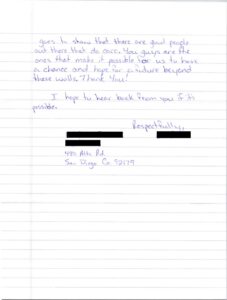 goes to show that there are good people
out there that do care. You guys are the
ones that make it possible for us to have
a chance and hope for a future beyond
these walls. Thank You!
I hope to hear back from you if its
possible.
Respectfully,
480 Alta Rd.
San Diego Ca 92179